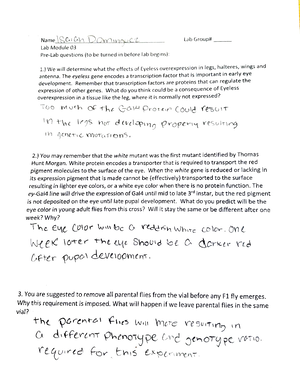 Name Isaiah Dominguez Lab Group#
Lab Module 03
Pre-Lab questions (to be turned in before lab begins)
1.) We will determine what the effects of Eyeless overexpression in legs, halteres, wings and
antenna. The eyeless gene encodes a transcription factor that is important in early eye
development. Remember that transcription factors are proteins that can regulate the
expression of other genes. What do you think could be a consequence of Eyeless
overexpression in a tissue like the leg, where it is normally not expressed?
Too much of the Gal4 Protein could result
in the legs not developing properly resulting
in genetic mutations.
2.) You may remember that the white mutant was the first mutant identified by Thomas
Hunt Morgan. White protein encodes a transporter that is required to transport the red
pigment molecules to the surface of the eye. When the white gene is reduced or lacking in
its expression pigment that is made cannot be (effectively) transported to the surface
resulting in lighter eye colors, or a white eye color when there is no protein function. The
ey-Gal4 line will drive the expression of Gal4 until mid to late 3rd instar, but the red pigment
is not deposited on the eye until late pupal development. What do you predict will be the
eye color in young adult flies from this cross? Will it stay the same or be different after one
week? Why?
The eye color will be a reddish white color. One
week later the eye should be a darker red
after pupal development.
3. You are suggested to remove all parental flies from the vial before any F1 fly emerges.
Why this requirement is imposed. What will happen if we leave parental flies in the same
vial?
the parental flies will mate resulting in
a different phenotype and genotype ratio
required for this experiment.